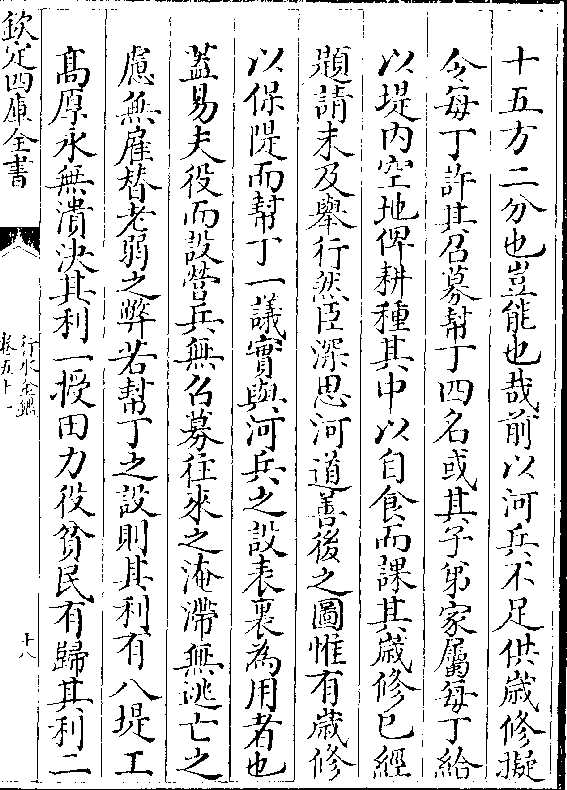 十五方二分也豈能也哉前以河兵不足供歲修擬
令每丁許其召募幫丁四名或其子弟家屬每丁給
以堤内空地俾耕種其中以自食而課其歲修已經
題請未及舉行然臣深思河道善後之圖惟有歲修
以保隄而幫丁一議實與河兵之設表裏為用者也
蓋易夫役而設營兵無召募往來之淹滯無逃亡之
慮無雇替老弱之弊若幫丁之設則其利有八堤工
髙厚永無潰决其利一授田力役貧民有歸其利二
欽定四庫全書
行水金鑑
卷五十一
十八